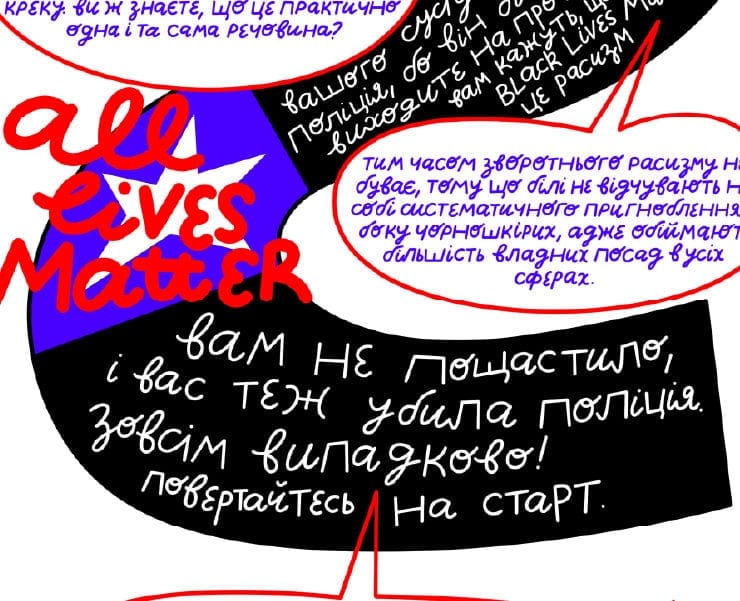 КРЕКУ. ВИ Ж ЗНАЄТЕ, ЩО ЦЕ ПРАКТИЧНО
ОДНА І ТА САМА РЕЧОВИНА?
ВАШОГО
ПОЛІЦІЯ, БО ВІН
ВИХОДИТЕ НА
ВАМ КАЖУТЬ,
BLACK LIVES
ЦЕ РАСИЗМ
all
LiVES
MattER
ТИМ ЧАСОМ ЗВОРОТНЬОГО РАСИЗМУ
БУВАЄ, ТОМУ ЩО БІЛІ НЕ ВІДЧУВАЮТЬ
СОБІ СИСТЕМАТИЧНОГО ПРИГНОБЛЕННЯ
БОКУ ЧОРНОШКІРИХ, АДЖЕ ОБІЙМАЮТ
БІЛЬШІСТЬ ВЛАДНИХ ПОСАД В УСІХ
СФЕРАХ.
ВАМ НЕ ПОЩАСТИЛО,
І ВАС ТЕЖ УБИЛА ПОЛІЦІЯ.
ЗОВСІМ ВИПАДКОВО!
ПОВЕРТАЙТЕСЬ НА СТАРТ.